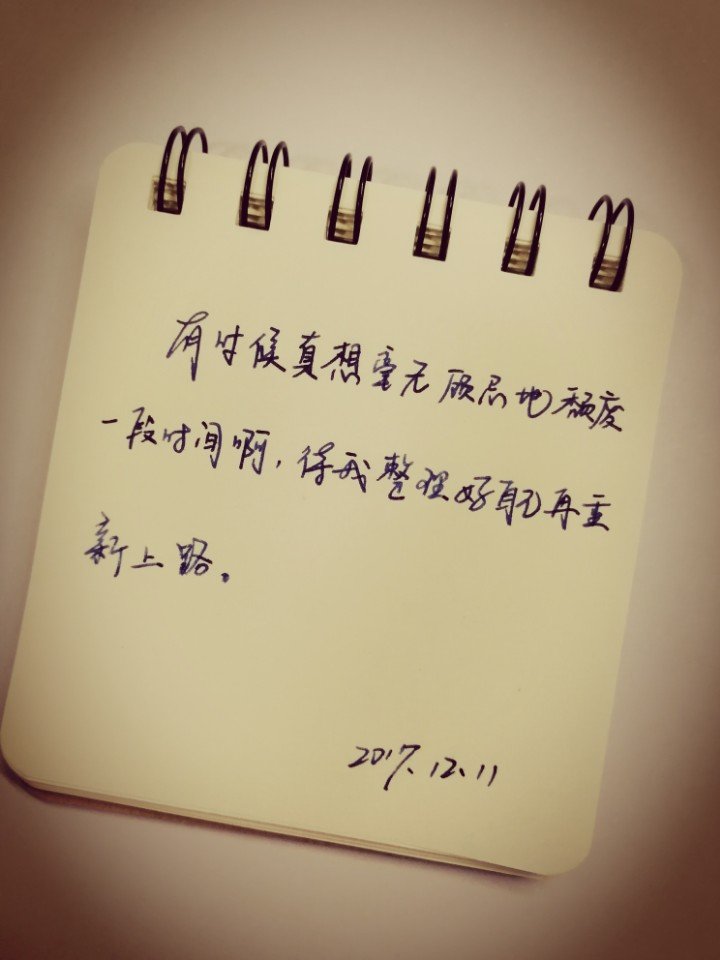 有时候真想毫无顾忌地颓废
一段时间啊，待我整理好再重
新上路。
2017.12.11